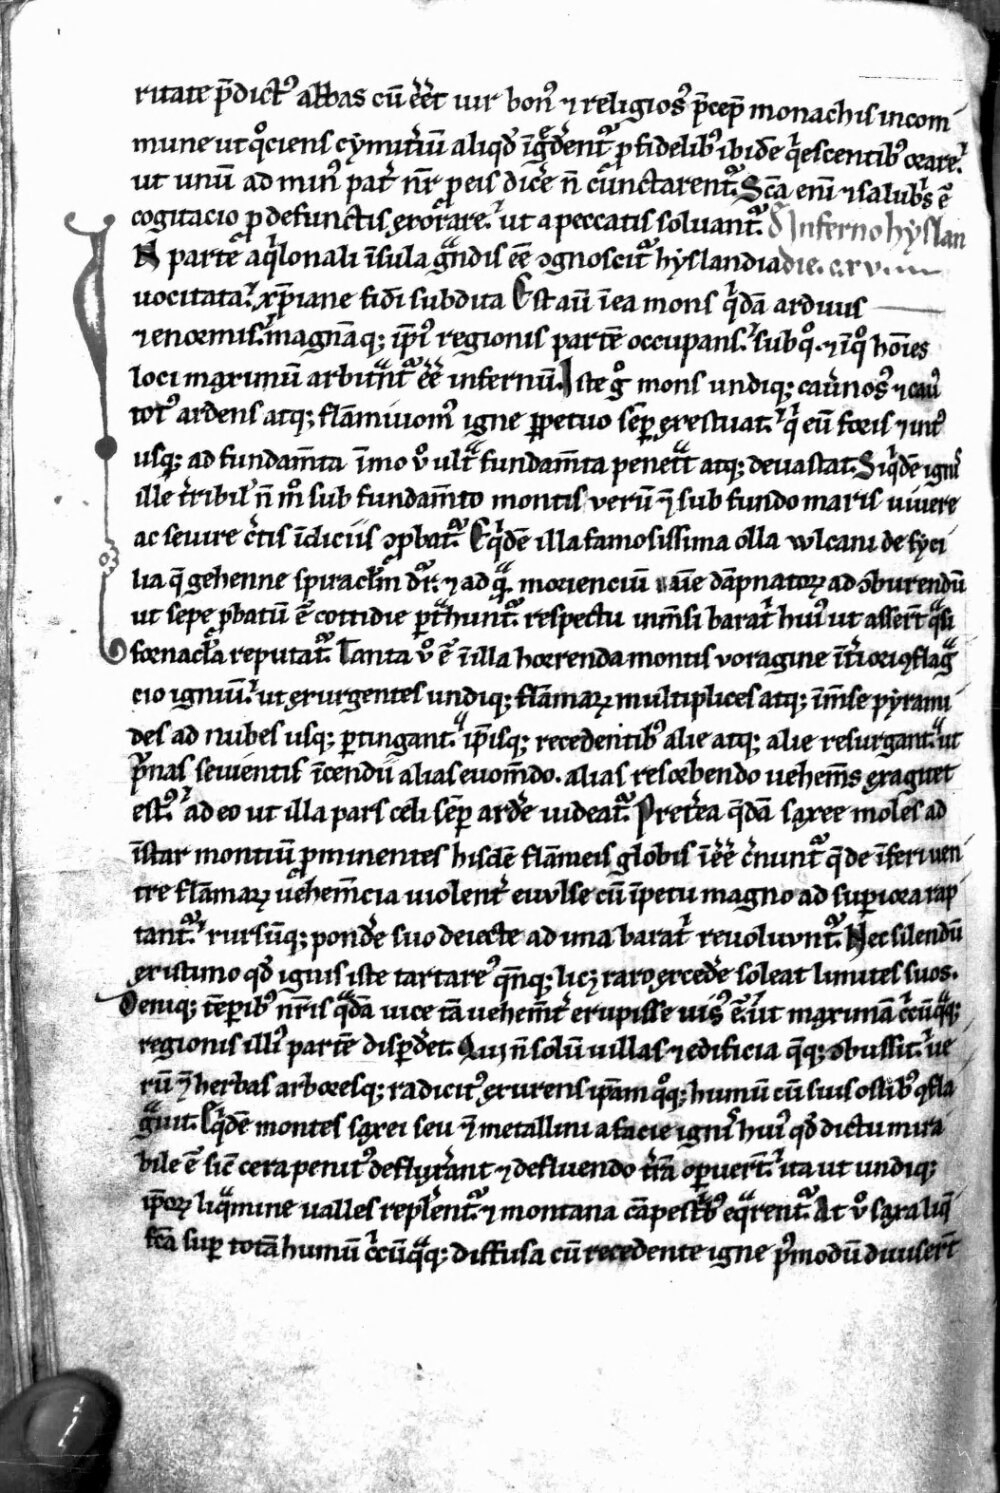 ritate p̄dictꝰ abbas cū eēt uir bonꝰ ⁊ religiosꝰ p̄cep̄ monachis in com
mune ut qͦciens cymit̾iū aliqd̾ īg̾derent᷑ ꝓ fidelibꝰ ibidē qͥescentibꝰ orare.
ut unū ad minꝰ pat̾ nr̄ ꝓ eis dic̾e n̄ cūnctarent᷑. Sc̄a enī ⁊ salubͥs ē
cogitacio ꝓ defunctis exorare. ut a peccatis soluant᷑. D̾ Inferno hyslan
N partē aqͥlonali īsula gͣndis eē ꝯgnoscit᷑ hyslandia die. c.xv.iiii
uocitata. xp̄iane fidi subdita Est aū īea mons qͥdā arduus
⁊ enormis. magnāqꝫ ip̄iꝰ regionis partē occupans. sub qͦ. ⁊ ī qͦ hoīes
loci maximū arbitͣnt᷑ eē infernū. Iste gͦ mons undiqꝫ cau̾nosꝰ ⁊ cauꝰ
totꝰ ardens atqꝫ flāmiuomꝰ igne ꝑpetuo semꝑ exestuat. qͥ eū foris ⁊ intꝰ
usqꝫ ad fundam̄ta īmo uͦ ultͣ fundam̄ta penetͣt atqꝫ deuastat. Siqͥdē ignis
ille t̾ribilꝰ n̄ mͦ sub fundam̄to montis verū ⁊̄ sub fundo maris uiuere
ac seuire c̾tis īdiciis ꝯꝓbat᷑. Eqͥdē illa famosissima olla wlcani de syci
lia q̄ gehenne spiraclm̄ dr̄. ⁊ ad qͣ. morienciū aīe dāpnatoꝝ ad ꝯburendū
ut sepe ꝓbatū ē cottidie ꝑtͣhunt᷑. respectu inm̄si baratͥ huiꝰ ut asserūt qͣsi
fornacl̄a reputat᷑. Tanta uͦ ē ī illa horrenda montis voragine īt̾ioris ꝯflag
cio igniū. ut exurgentes undiqꝫ flāmaꝝ multiplices atqꝫ īm̄se pyrami
des ad nubes usqꝫ ꝑtingant. ip̄isqꝫ recedentibꝰ alie atqꝫ alie resurgant. ut
p̾nas seuientis īcendii alias euom̄do. alias resorbendo uehem̄s exagitet
estꝰ. adeo ut illa pars celi semꝑ ard̾e uideat᷑. Pret̾ea q̄dā saxee moles ad
īstar montiū ꝓminentes hisdē flāmeis globis īeē c̾nunt᷑ q̄ de īferi uen
tre flāmaꝝ uehem̄cia uiolent̾ euulse cū īpetu magno ad suꝑiora rap
tant᷑. rursūqꝫ pond̾e suo deiecte ad una baratͥ reuoluunt᷑. Nec silendū
existimo qd̾ ignis iste tartareꝰ qn̄qꝫ licꝫ raro exced̾e soleat limites suos.
Deniqꝫ tēꝑibꝰ nr̄is qͣdā uice tā uehem̄t̾ erupisse uisꝰ ē. ut maximā c̾cūqͣqꝫ
regionis illiꝰ partē disꝑdet. Quiꝫ n̄ solū uillas ⁊ edificia q̄qꝫ ꝯbussit. ue
rū ⁊̄ herbas arboresqꝫ radicitꝰ exurens ip̄am qͦqꝫ humū cū suis ossibꝰ ꝯfla
gͣuit. Eqͥdē montes saxei seu ⁊̄ metallini a facie ignis huiꝰ qd̾ dictu mira
bile ē sic̄ cera penitꝰ deflux̾ant ⁊ defluendo t̾rā oꝑuert᷑. ita ut undiqꝫ
ip̄oꝝ liqͣmine ualles replēt᷑. ⁊ montana cāpestribꝰ eqͣrent᷑. At uͦ saxa liq̄
fc̄a suꝑ totā humū c̾cūqͣqꝫ diffusa cū recedente igne p̾modū diuisert̄